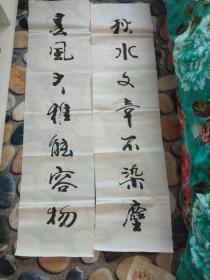 秋水文章不染塵
春風大雅能容物